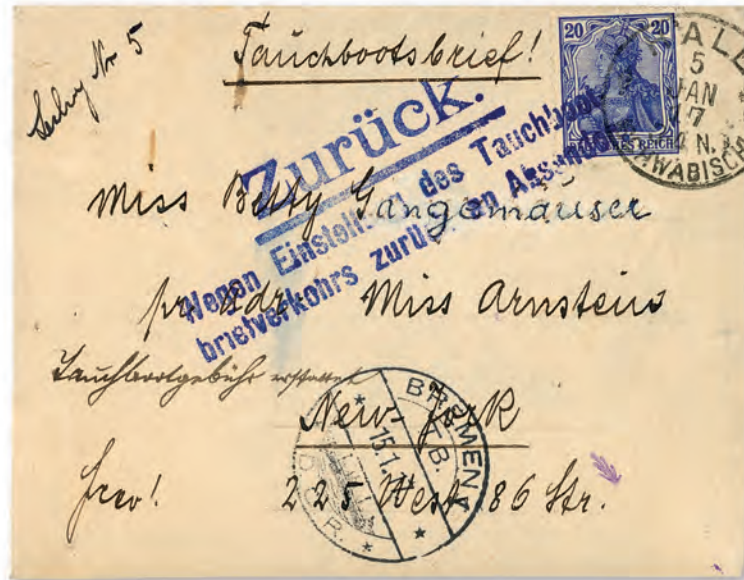 Tauchbootsbrief!
Nr 5
20 20
DEUTSCHES REICH
HALL
5
JAN
17
N.
SCHWÄBISCH
Zurück.
Wegen Einstellung des Tauchboot-
briefverkehrs zurück an Absender
Miss Betty Gangemäuser
pr. Adr. Miss Arnstein
Tauchbootgebühr erstattet
New-York
225 West 86 Str.
BREMEN
T.B.
15.1.17